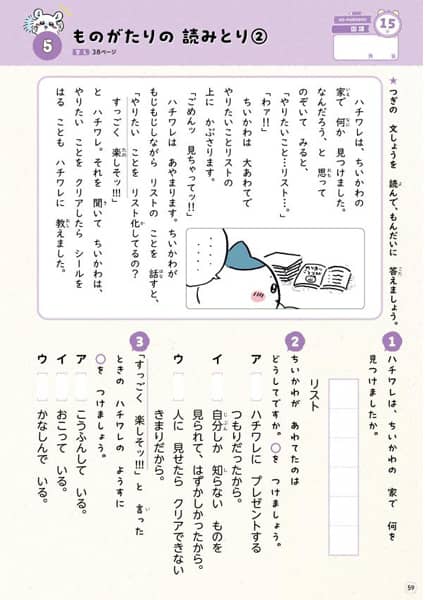 5
ものがたりの 読みとり②
38ページ
国語
15
月
日
★つぎの 文しょうを 読んで、もんだいに 答えましょう。
ハチワレは、ちいかわの
家で 何か 見つけました。
なんだろう、と 思って
のぞいて みると、
「やりたいこと…リスト…。」
「わァ!!」
ちいかわは 大あわてで
やりたいことリストの
上に かぶさります。
「ごめんッ 見ちゃってッ!!」
ハチワレは あやまります。ちいかわが
もじもじしながら リストの ことを 話すと、
「やりたい ことを リスト化してるの?
すっごく 楽しそッ!!!」
と ハチワレ。それを 聞いて ちいかわは、
やりたい ことを クリアしたら シールを
はる ことも ハチワレに 教えました。
1
ハチワレは、ちいかわの 家で 何を
見つけましたか。
リスト
2
ちいかわが あわてたのは
どうしてですか。○を つけましょう。
ア
ハチワレに プレゼントする
つもりだったから。
イ
自分しか 知らない ものを
見られて、はずかしかったから。
ウ
人に 見せたら クリアできない
きまりだから。
3
「すっごく 楽しそッ!!!」と 言った
ときの ハチワレの ようすに
○を つけましょう。
ア
こうふんして いる。
イ
おこって いる。
ウ
かなしんで いる。
59